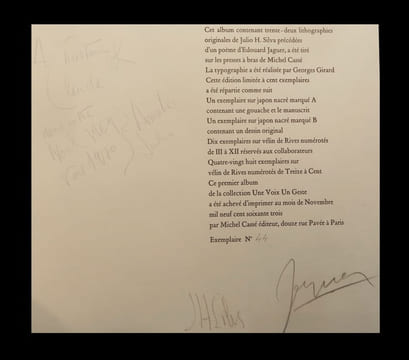 Cet album contenant trente-deux lithographies
originales de Julio H. Silva précédées
d'un poème d'Edouard Jaguer, a été tiré
sur les presses à bras de Michel Cassé
La typographie a été réalisée par Georges Girard
Cette édition limitée à cent exemplaires
a été répartie comme suit
Un exemplaire sur japon nacré marqué A
contenant une gouache et le manuscrit
Un exemplaire sur japon nacré marqué B
contenant un dessin original
Dix exemplaires sur vélin de Rives numérotés
de III à XII réservés aux collaborateurs
Quatre-vingt huit exemplaires sur
vélin de Rives numérotés de Treize à Cent
Ce premier album
de la collection Une Voix Un Geste
a été achevé d'imprimer au mois de Novembre
mil neuf cent soixante trois
par Michel Cassé éditeur, douze rue Pavée à Paris
Exemplaire N° 44
A
Claude